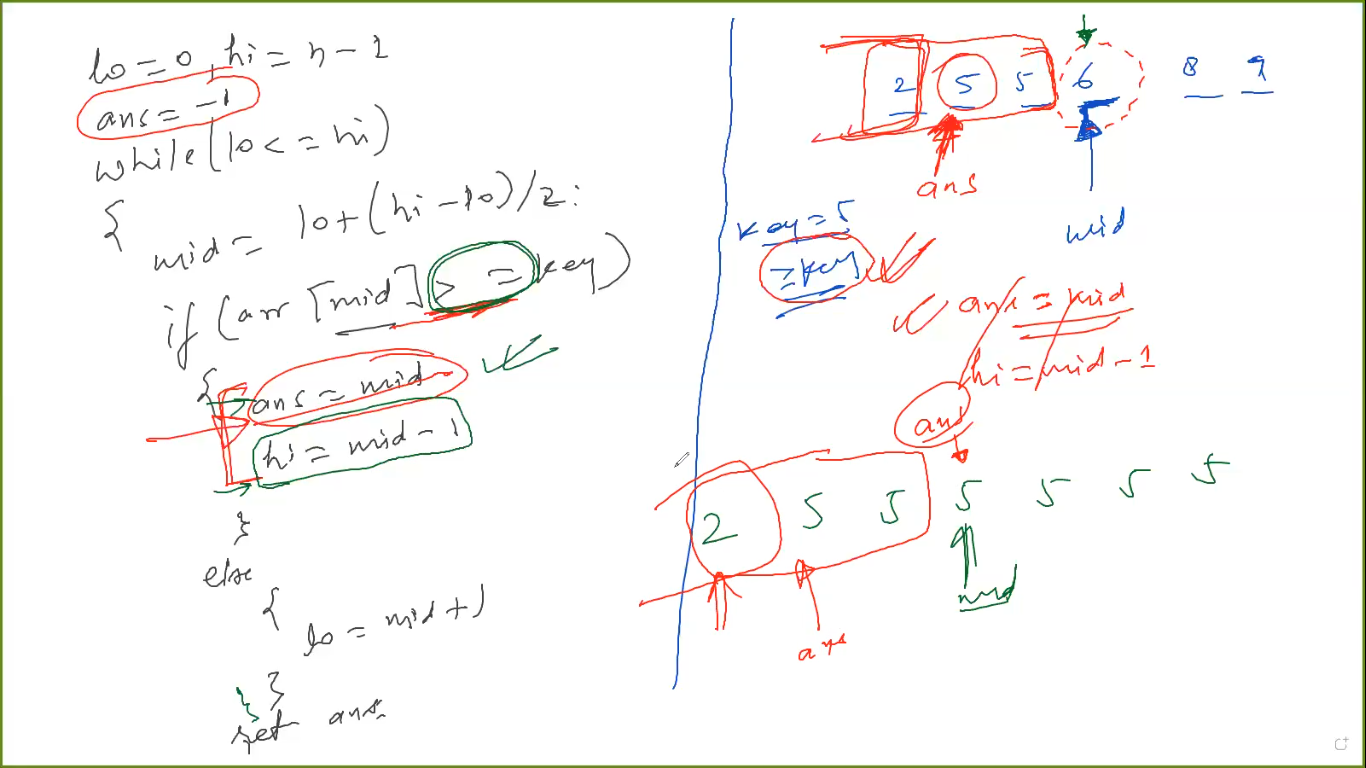 lo = 0, hi = n - 1
ans = -1
while (lo < = hi)
{
mid = lo + (hi - lo) / 2;
if (arr [mid] > = key)
{
ans = mid
hi = mid - 1
}
else
{
lo = mid + 1
}
}
ret ans
2 5 5 6 8 9
ans
mid
key = 5
≥ key
ans = mid
hi = mid - 1
ans
2 5 5 5 5 5 5
mid
ans